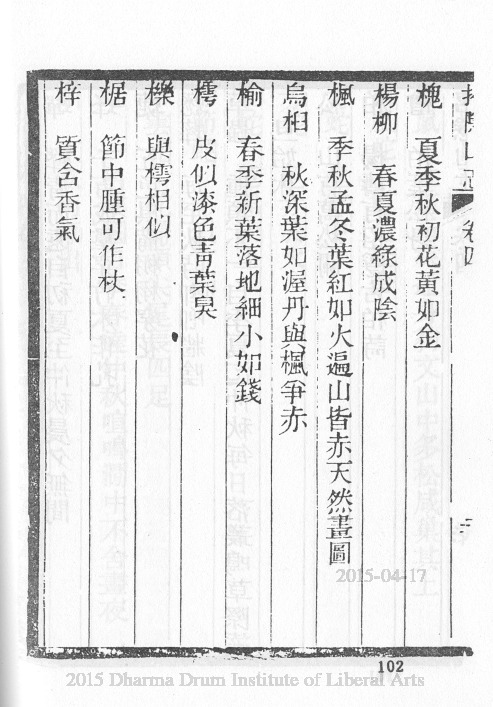 山志 卷四
槐 夏季秋初花黃如金
楊柳 春夏濃綠成陰
楓 季秋孟冬葉紅如火遍山皆赤天然畫圖
烏桕 秋深葉如渥丹與楓爭赤
榆 春季新葉落地細小如錢
樗 皮似漆色青葉臭
櫟 與樗相似
椐 節中腫可作杖
梓 質含香氣
2015-04-17
102
2015 Dharma Drum Institute of Liberal Arts